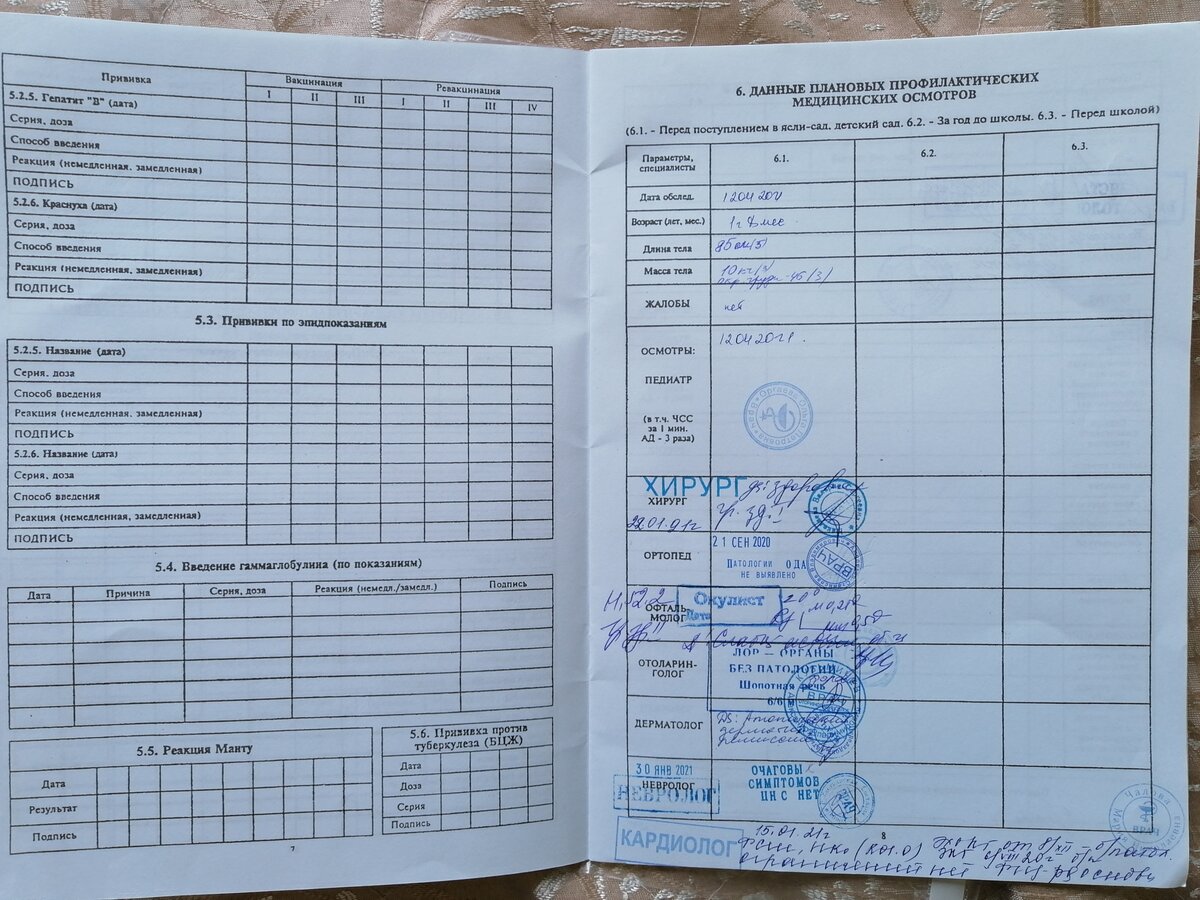 Прививка Вакцинация Ревакцинация
I II III I II III IV
5.2.5. Гепатит "В" (дата)
Серия, доза
Способ введения
Реакция (немедленная, замедленная)
ПОДПИСЬ
5.2.6. Краснуха (дата)
Серия, доза
Способ введения
Реакция (немедленная, замедленная)
ПОДПИСЬ
5.3. Прививки по эпидпоказаниям
5.2.5. Название (дата)
Серия, доза
Способ введения
Реакция (немедленная, замедленная)
ПОДПИСЬ
5.2.6. Название (дата)
Серия, доза
Способ введения
Реакция (немедленная, замедленная)
ПОДПИСЬ
5.4. Введение гаммаглобулина (по показаниям)
Дата Причина Серия, доза Реакция (немедл./замедл.) Подпись
5.5. Реакция Манту
Дата
Результат
Подпись
5.6. Прививка против
туберкулеза (БЦЖ)
Дата
Доза
Серия
Подпись
7
6. ДАННЫЕ ПЛАНОВЫХ ПРОФИЛАКТИЧЕСКИХ
МЕДИЦИНСКИХ ОСМОТРОВ
(6.1. - Перед поступлением в ясли-сад, детский сад. 6.2. - За год до школы. 6.3. - Перед школой)
Параметры,
специалисты
6.1. 6.2. 6.3.
Дата обслед.
Возраст (лет, мес.)
Длина тела
Масса тела
ЖАЛОБЫ нет
ОСМОТРЫ:
ПЕДИАТР
(в т.ч. ЧСС
за 1 мин.
АД - 3 раза)
ХИРУРГ
ХИРУРГ
ОРТОПЕД
21 СЕН 2020
ПАТОЛОГИИ ОДА
НЕ ВЫЯВЛЕНО
ВРАЧ
ОФТАЛЬ-
МОЛОГ
Окулист
Дата
H52.2
ОТОЛАРИН-
ГОЛОГ
ЛОР - ОРГАНЫ
БЕЗ ПАТОЛОГИЙ
Шопотная речь
6/6 м
ДЕРМАТОЛОГ
30 ЯНВ 2021
НЕВРОЛОГ
НЕВРОЛОГ
ОЧАГОВЫХ
СИМПТОМОВ
ЦНС НЕТ
КАРДИОЛОГ
15.01.21г
8
ВРАЧ